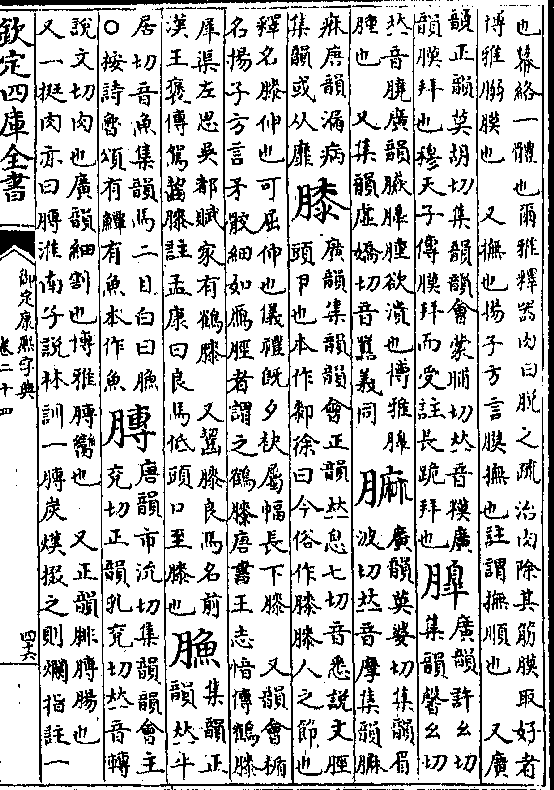 也幕絡一體也爾雅釋器肉曰脫之疏治肉除其筋膜取好者
博雅膜也 又撫也揚子方言膜撫也註謂撫順也 又廣
韻正韻莫胡切集韻韻會蒙晡切𠀤音模廣
韻膜拜也穆天子傳膜拜而受註長跪拜也
廣韻許幺切
集韻馨幺切
𠀤音膮廣韻腫欲潰也博雅
腫也 又集韻虛嬌切音鴞義同
𦟟
廣韻莫婆切集韻眉
波切𠀤音摩集韻𦟟
痳唐韻漏病
集韻或从靡
膝
廣韻集韻韻會正韻𠀤息七切音悉說文脛
頭卪也本作厀徐曰今俗作膝膝人之節也
釋名膝伸也可屈伸也儀禮旣夕袂屬幅長下膝 又韻會楯
名揚子方言矛骹細如鴈脛者謂之鶴膝唐書王志愔傳鶴膝
犀渠左思吳都賦家有鶴膝 又齧膝良馬名前
漢王褒傳駕齧膝註孟康曰良馬低頭口至膝也
䐳
集韻正
韻𠀤牛
居切音魚集韻馬二目白曰䐳
○按詩魯頌有驔有魚本作魚
膞
唐韻市沇切集韻韻會主
兗切正韻乳兗切𠀤音轉
說文切肉也廣韻細割也博雅膞臠也 又正韻腓膞腸也
又一挺肉亦曰膞淮南子說林訓一膞炭熯掇之則爛指註一
欽定四庫全書
御定康熙字典
卷二十四
四六